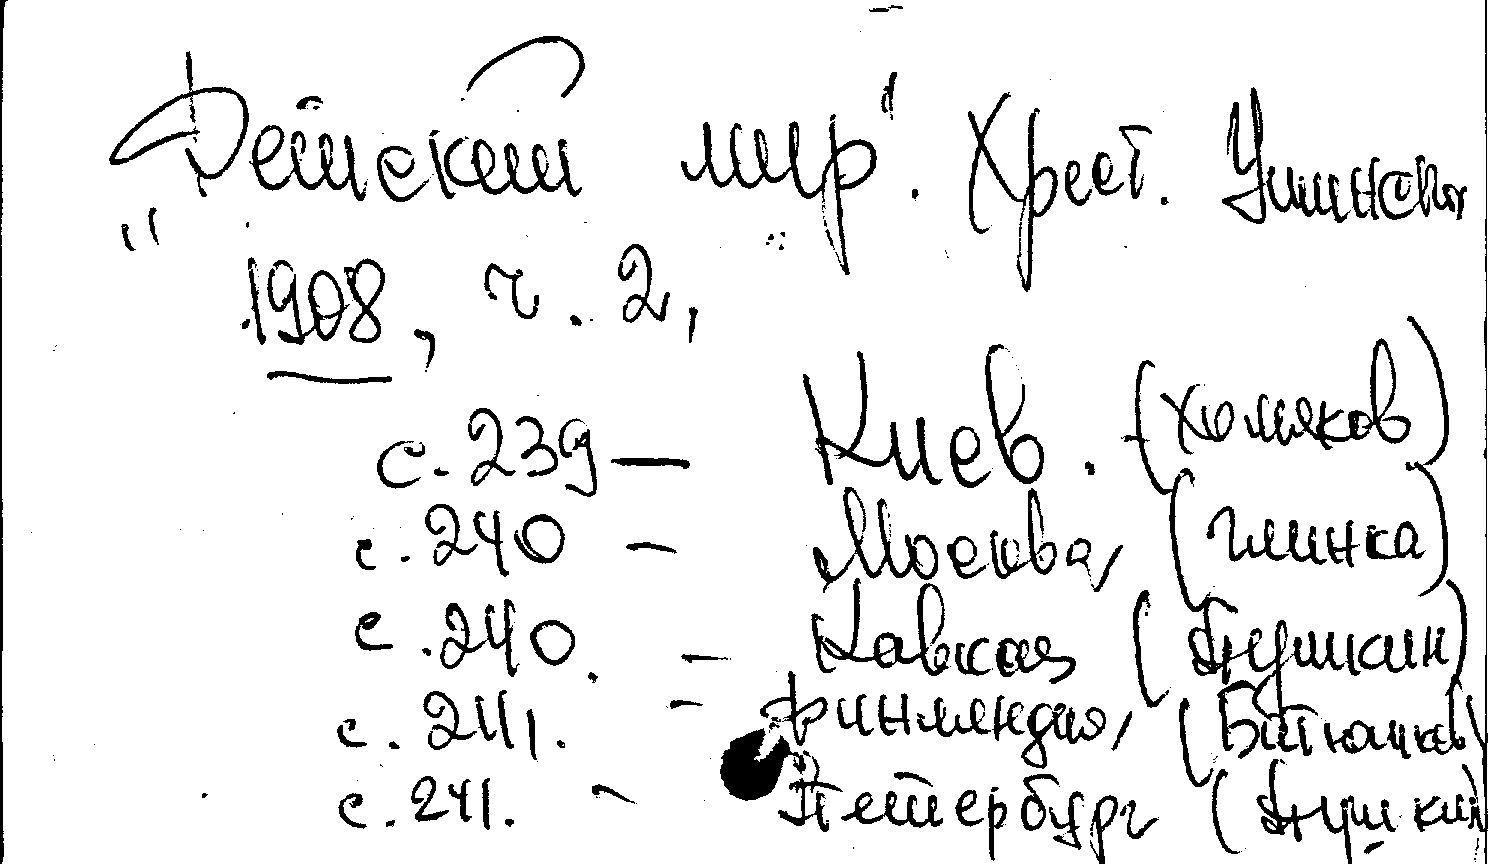 "Детский мир". Хрест. Ушинского
1908, ч. 2,
с. 239 — Киев. (Хомяков)
с. 240 — Москва, (Глинка)
с. 240. — Кавказ (Пушкин)
с. 241. — Финляндия, (Батюшков)
с. 241. — Петербург (Пушкин)